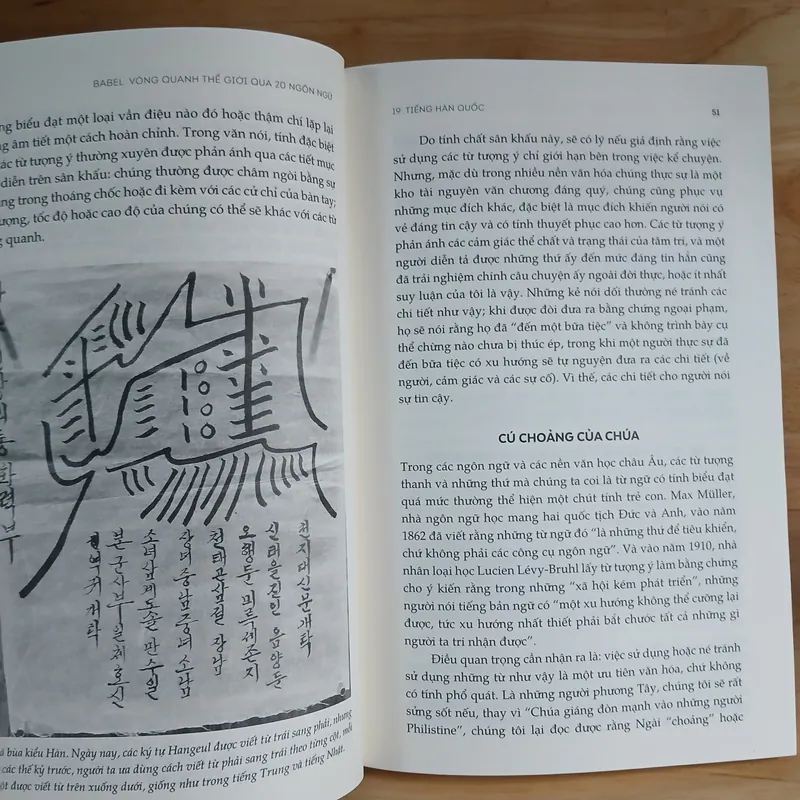 BABEL VÒNG QUANH THẾ GIỚI QUA 20 NGÔN NGỮ
biểu đạt một loại vần điệu nào đó hoặc thậm chí lặp lại
âm tiết một cách hoàn chỉnh. Trong văn nói, tính đặc biệt
các từ tượng ý thường xuyên được phản ánh qua các tiết mục
diễn trên sân khấu: chúng thường được châm ngòi bằng sự
trong thoáng chốc hoặc đi kèm với các cử chỉ của bàn tay;
tượng, tốc độ hoặc cao độ của chúng có thể sẽ khác với các từ
quanh.
천지대신문개탁
bùa kiểu Hàn. Ngày nay, các ký tự Hangeul được viết từ trái sang phải, nhưng
các thế kỷ trước, người ta ưa dùng cách viết từ phải sang trái theo từng cột, mỗi
cột được viết từ trên xuống dưới, giống như trong tiếng Trung và tiếng Nhật.
19 TIẾNG HÀN QUỐC
51
Do tính chất sân khấu này, sẽ có lý nếu giả định rằng việc
sử dụng các từ tượng ý chỉ giới hạn bên trong việc kể chuyện.
Nhưng, mặc dù trong nhiều nền văn hóa chúng thực sự là một
kho tài nguyên văn chương đáng quý, chúng cũng phục vụ
những mục đích khác, đặc biệt là mục đích khiến người nói có
vẻ đáng tin cậy và có tính thuyết phục cao hơn. Các từ tượng ý
phản ánh các cảm giác thể chất và trạng thái của tâm trí, và một
người diễn tả được những thứ ấy đến mức đáng tin hẳn cũng
đã trải nghiệm chính câu chuyện ấy ngoài đời thực, hoặc ít nhất
suy luận của tôi là vậy. Những kẻ nói dối thường né tránh các
chi tiết như vậy; khi được đòi đưa ra bằng chứng ngoại phạm,
họ sẽ nói rằng họ đã “đến một bữa tiệc” và không trình bày cụ
thể chừng nào chưa bị thúc ép, trong khi một người thực sự đã
đến bữa tiệc có xu hướng sẽ tự nguyện đưa ra các chi tiết (về
người, cảm giác và các sự cố). Vì thế, các chi tiết cho người nói
sự tin cậy.
CÚ CHOẢNG CỦA CHÚA
Trong các ngôn ngữ và các nền văn học châu Âu, các từ tượng
thanh và những thứ mà chúng ta coi là từ ngữ có tính biểu đạt
quá mức thường thể hiện một chút tính trẻ con. Max Müller,
nhà ngôn ngữ học mang hai quốc tịch Đức và Anh, vào năm
1862 đã viết rằng những từ ngữ đó “là những thứ để tiêu khiển,
chứ không phải các công cụ ngôn ngữ”. Và vào năm 1910, nhà
nhân loại học Lucien Lévy-Bruhl lấy từ tượng ý làm bằng chứng
cho ý kiến rằng trong những “xã hội kém phát triển”, những
người nói tiếng bản ngữ có “một xu hướng không thể cưỡng lại
được, tức xu hướng nhất thiết phải bắt chước tất cả những gì
người ta tri nhận được”.
Điều quan trọng cần nhận ra là: việc sử dụng hoặc né tránh
sử dụng những từ như vậy là một ưu tiên văn hóa, chứ không
có tính phổ quát. Là những người phương Tây, chúng tôi sẽ rất
sửng sốt nếu, thay vì “Chúa giáng đòn mạnh vào những người
Philistine”, chúng tôi lại đọc được rằng Ngài “choảng” hoặc